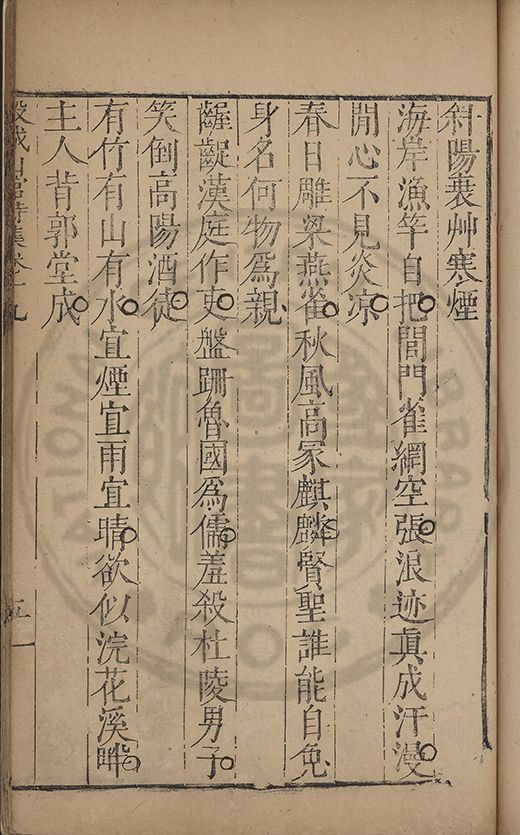 斜陽衰艸寒煙
海岸漁竿自把閭門雀網空張浪迹眞成汗漫
閒心不見炎凉
春日雕梁燕雀秋風高冢麒麟賢聖誰能自免
身名何物爲親
齷齪漢庭作吏盤跚魯國爲儒羞殺杜陵男子
笑倒高陽酒徒
有竹有山有水宜煙宜雨宜晴欲似浣花溪畔
主人背郭堂成
穀城山館詩集卷十九
五